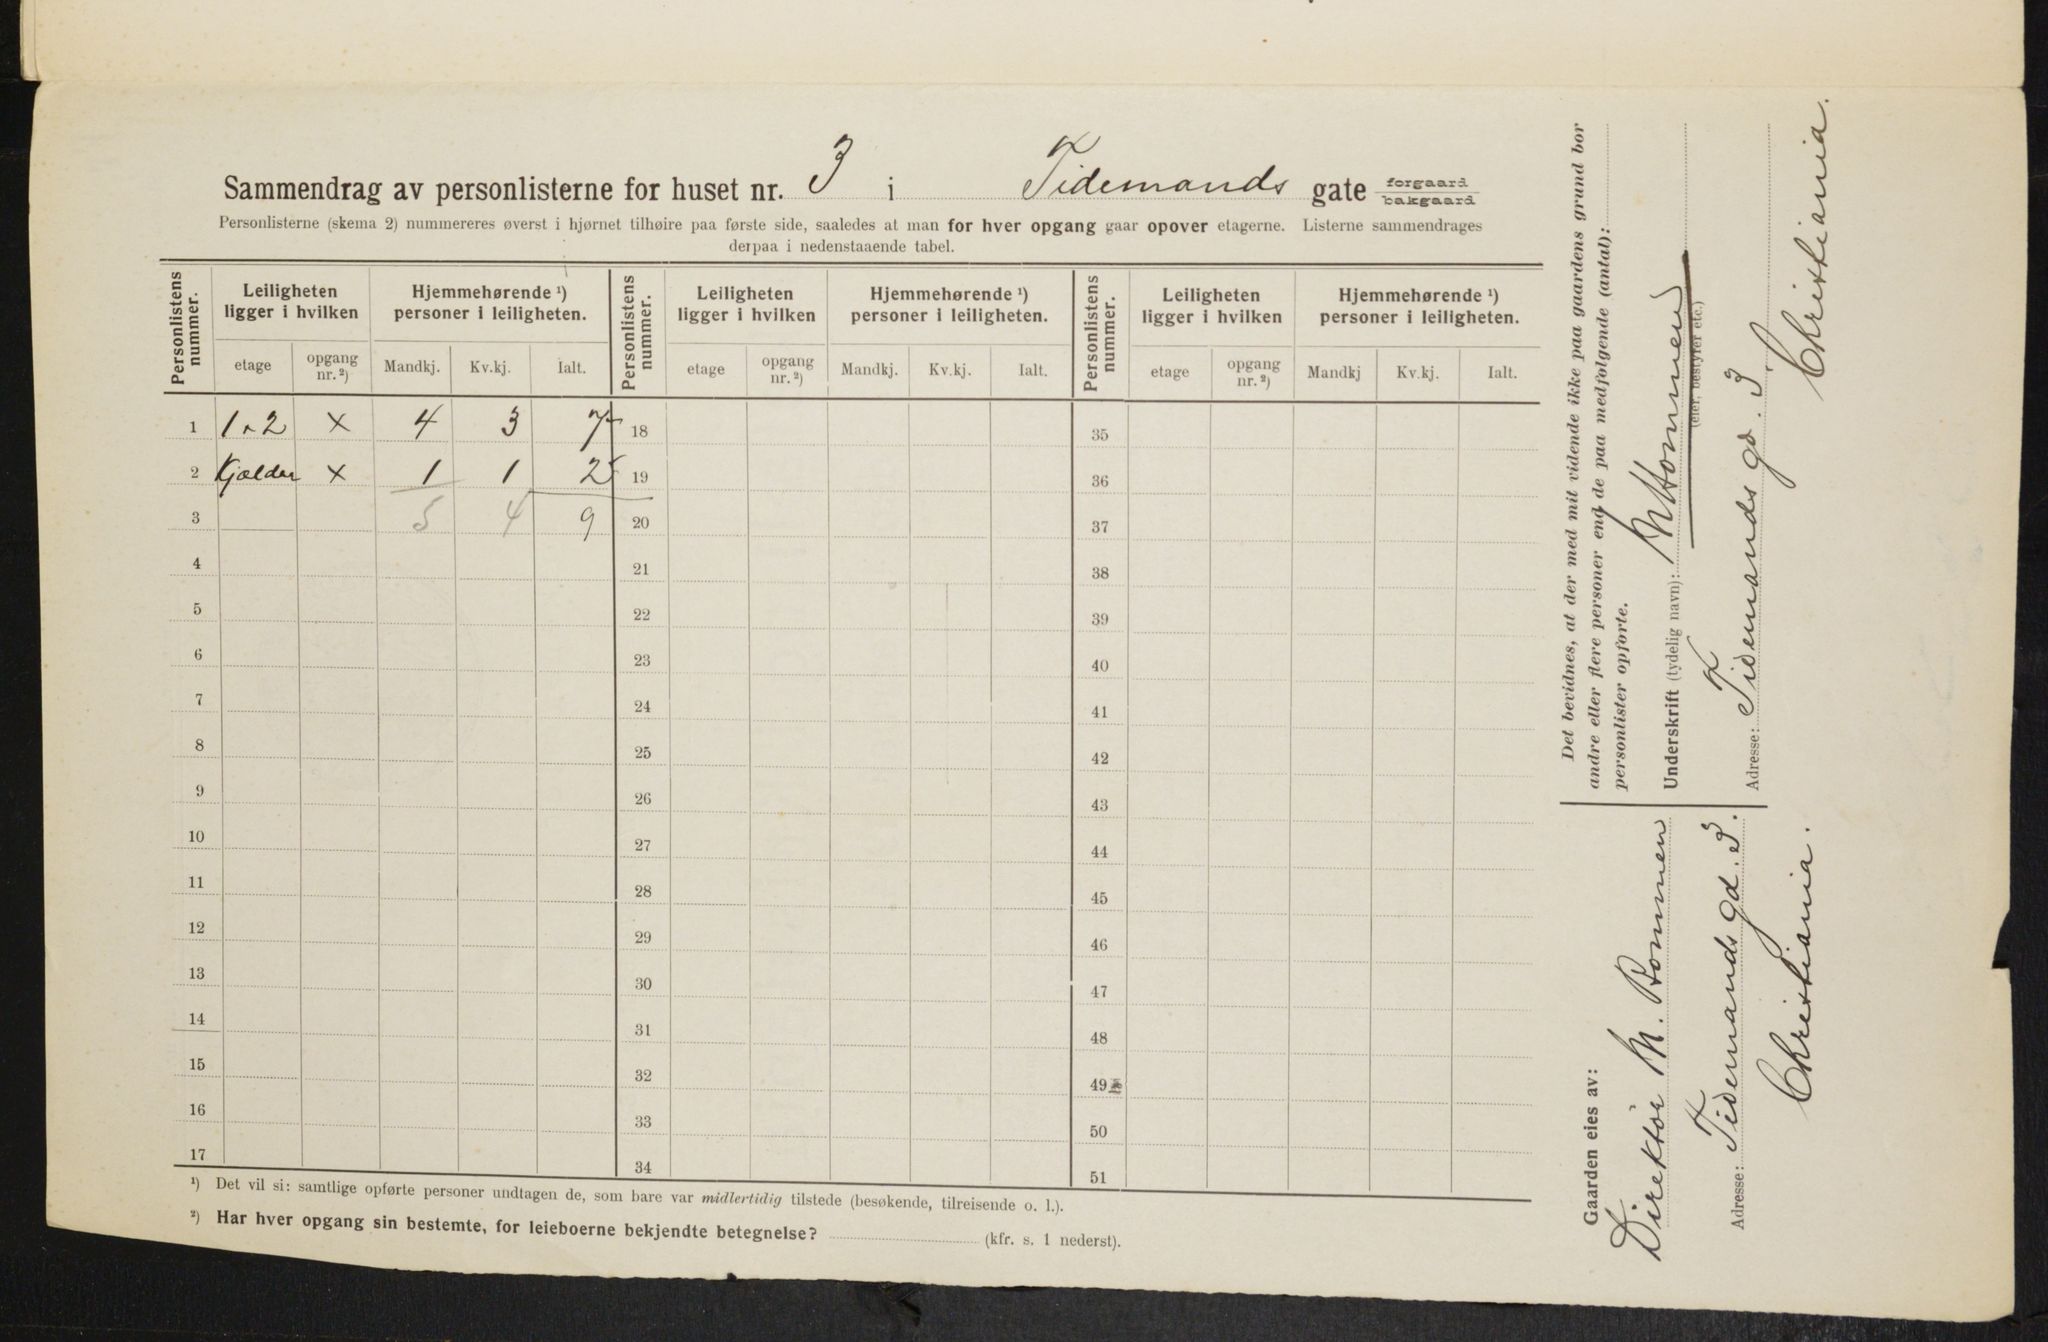 Sammendrag av personlisterne for huset nr. 3 i Tidemands gate forgaard bakgaard
Personlisterne (skema 2) nummereres øverst i hjørnet tilhøire paa første side, saaledes at man for hver opgang gaar opover etagerne. Listerne sammendrages
derpaa i nedenstaaende tabel.
Personlistens nummer. Leiligheten ligger i hvilken Hjemmehørende ¹) personer i leiligheten. Personlistens nummer. Leiligheten ligger i hvilken Hjemmehørende ¹) personer i leiligheten. Personlistens nummer. Leiligheten ligger i hvilken Hjemmehørende ¹) personer i leiligheten.
etage opgang nr. ²) Mandkj. Kv.kj. Ialt. etage opgang nr. ²) Mandkj. Kv.kj. Ialt. etage opgang nr. ²) Mandkj Kv.kj. Ialt.
1 1 2 × 4 3 7 18 35
2 Kjælder × 1 1 2 19 36
3 5 4 9 20 37
4 21 38
5 22 39
6 23 40
7 24 41
8 25 42
9 26 43
10 27 44
11 28 45
12 29 46
13 30 47
14 31 48
15 32 49
16 33 50
17 34 51
¹) Det vil si: samtlige opførte personer undtagen de, som bare var midlertidig tilstede (besøkende, tilreisende o. l.).
²) Har hver opgang sin bestemte, for leieboerne bekjendte betegnelse? (kfr. s. 1 nederst).
Det bevidnes, at der med mit vidende ikke paa gaardens grund bor
andre eller flere personer end de paa medfolgende (antal):
personlister opforte.
Underskrift (tydelig navn):
(eier, bestyrer etc.)
Adresse: Tidemands gd. 3.
Christiania.
Gaarden eies av:
Direktør M.
Adresse: Tidemands gd. 3.
Christiania.